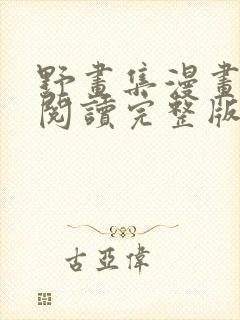 野畫集漫畫
閱讀完整版
古亞偉